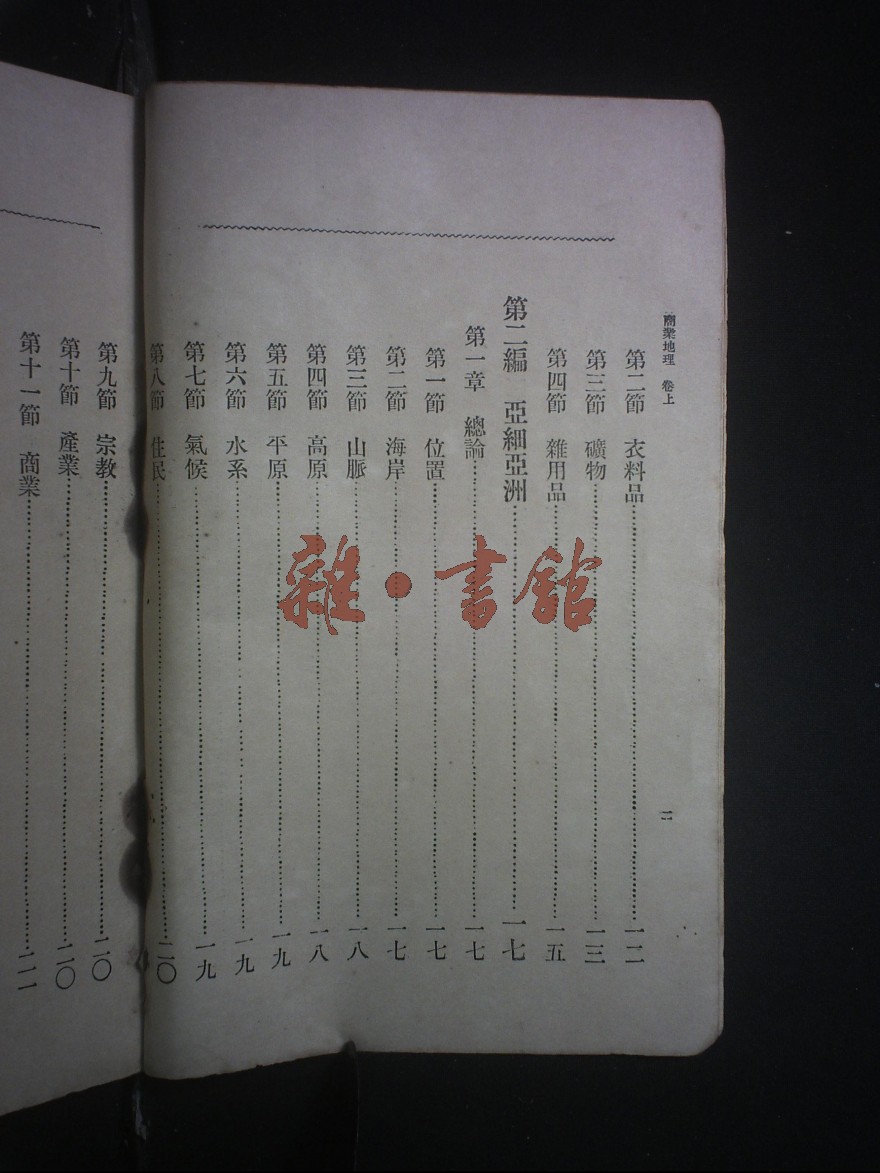 商業地理 卷上
二
第二節 衣料品 一二
第三節 礦物 一三
第四節 雜用品 一五
第二編 亞細亞洲 一七
第一章 總論 一七
第一節 位置 一七
第二節 海岸 一七
第三節 山脈 一八
第四節 高原 一八
第五節 平原 一九
第六節 水系 一九
第七節 氣候 一九
第八節 住民 二〇
第九節 宗教 二〇
第十節 產業 二〇
第十一節 商業 二一
雜·書館